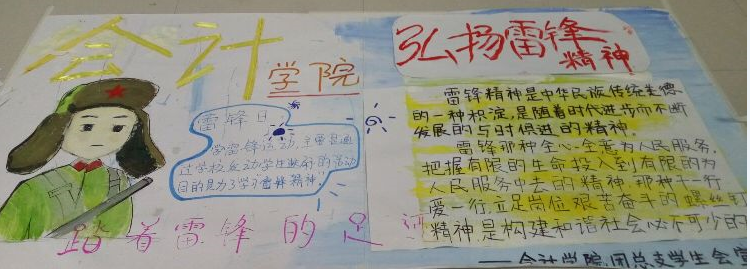 会计
学院
弘扬雷锋
精神
雷锋日:
学雷锋活动,主要是通
过学校反动学生进行的活动
目的是为了学习雷锋精神。
踏着雷锋的足
雷锋精神是中华民族传统美德
的一种积淀,是随着时代进步而不断
发展的与时俱进的精神。
雷锋那种全心全意为人民服务,
把握有限的生命投入到有限的为
人民服务中去的精神,那种干一行
爱一行,立足岗位艰苦奋斗的螺丝钉
精神是构建和谐社会必不可少的
——会计学院团总支学生会宣